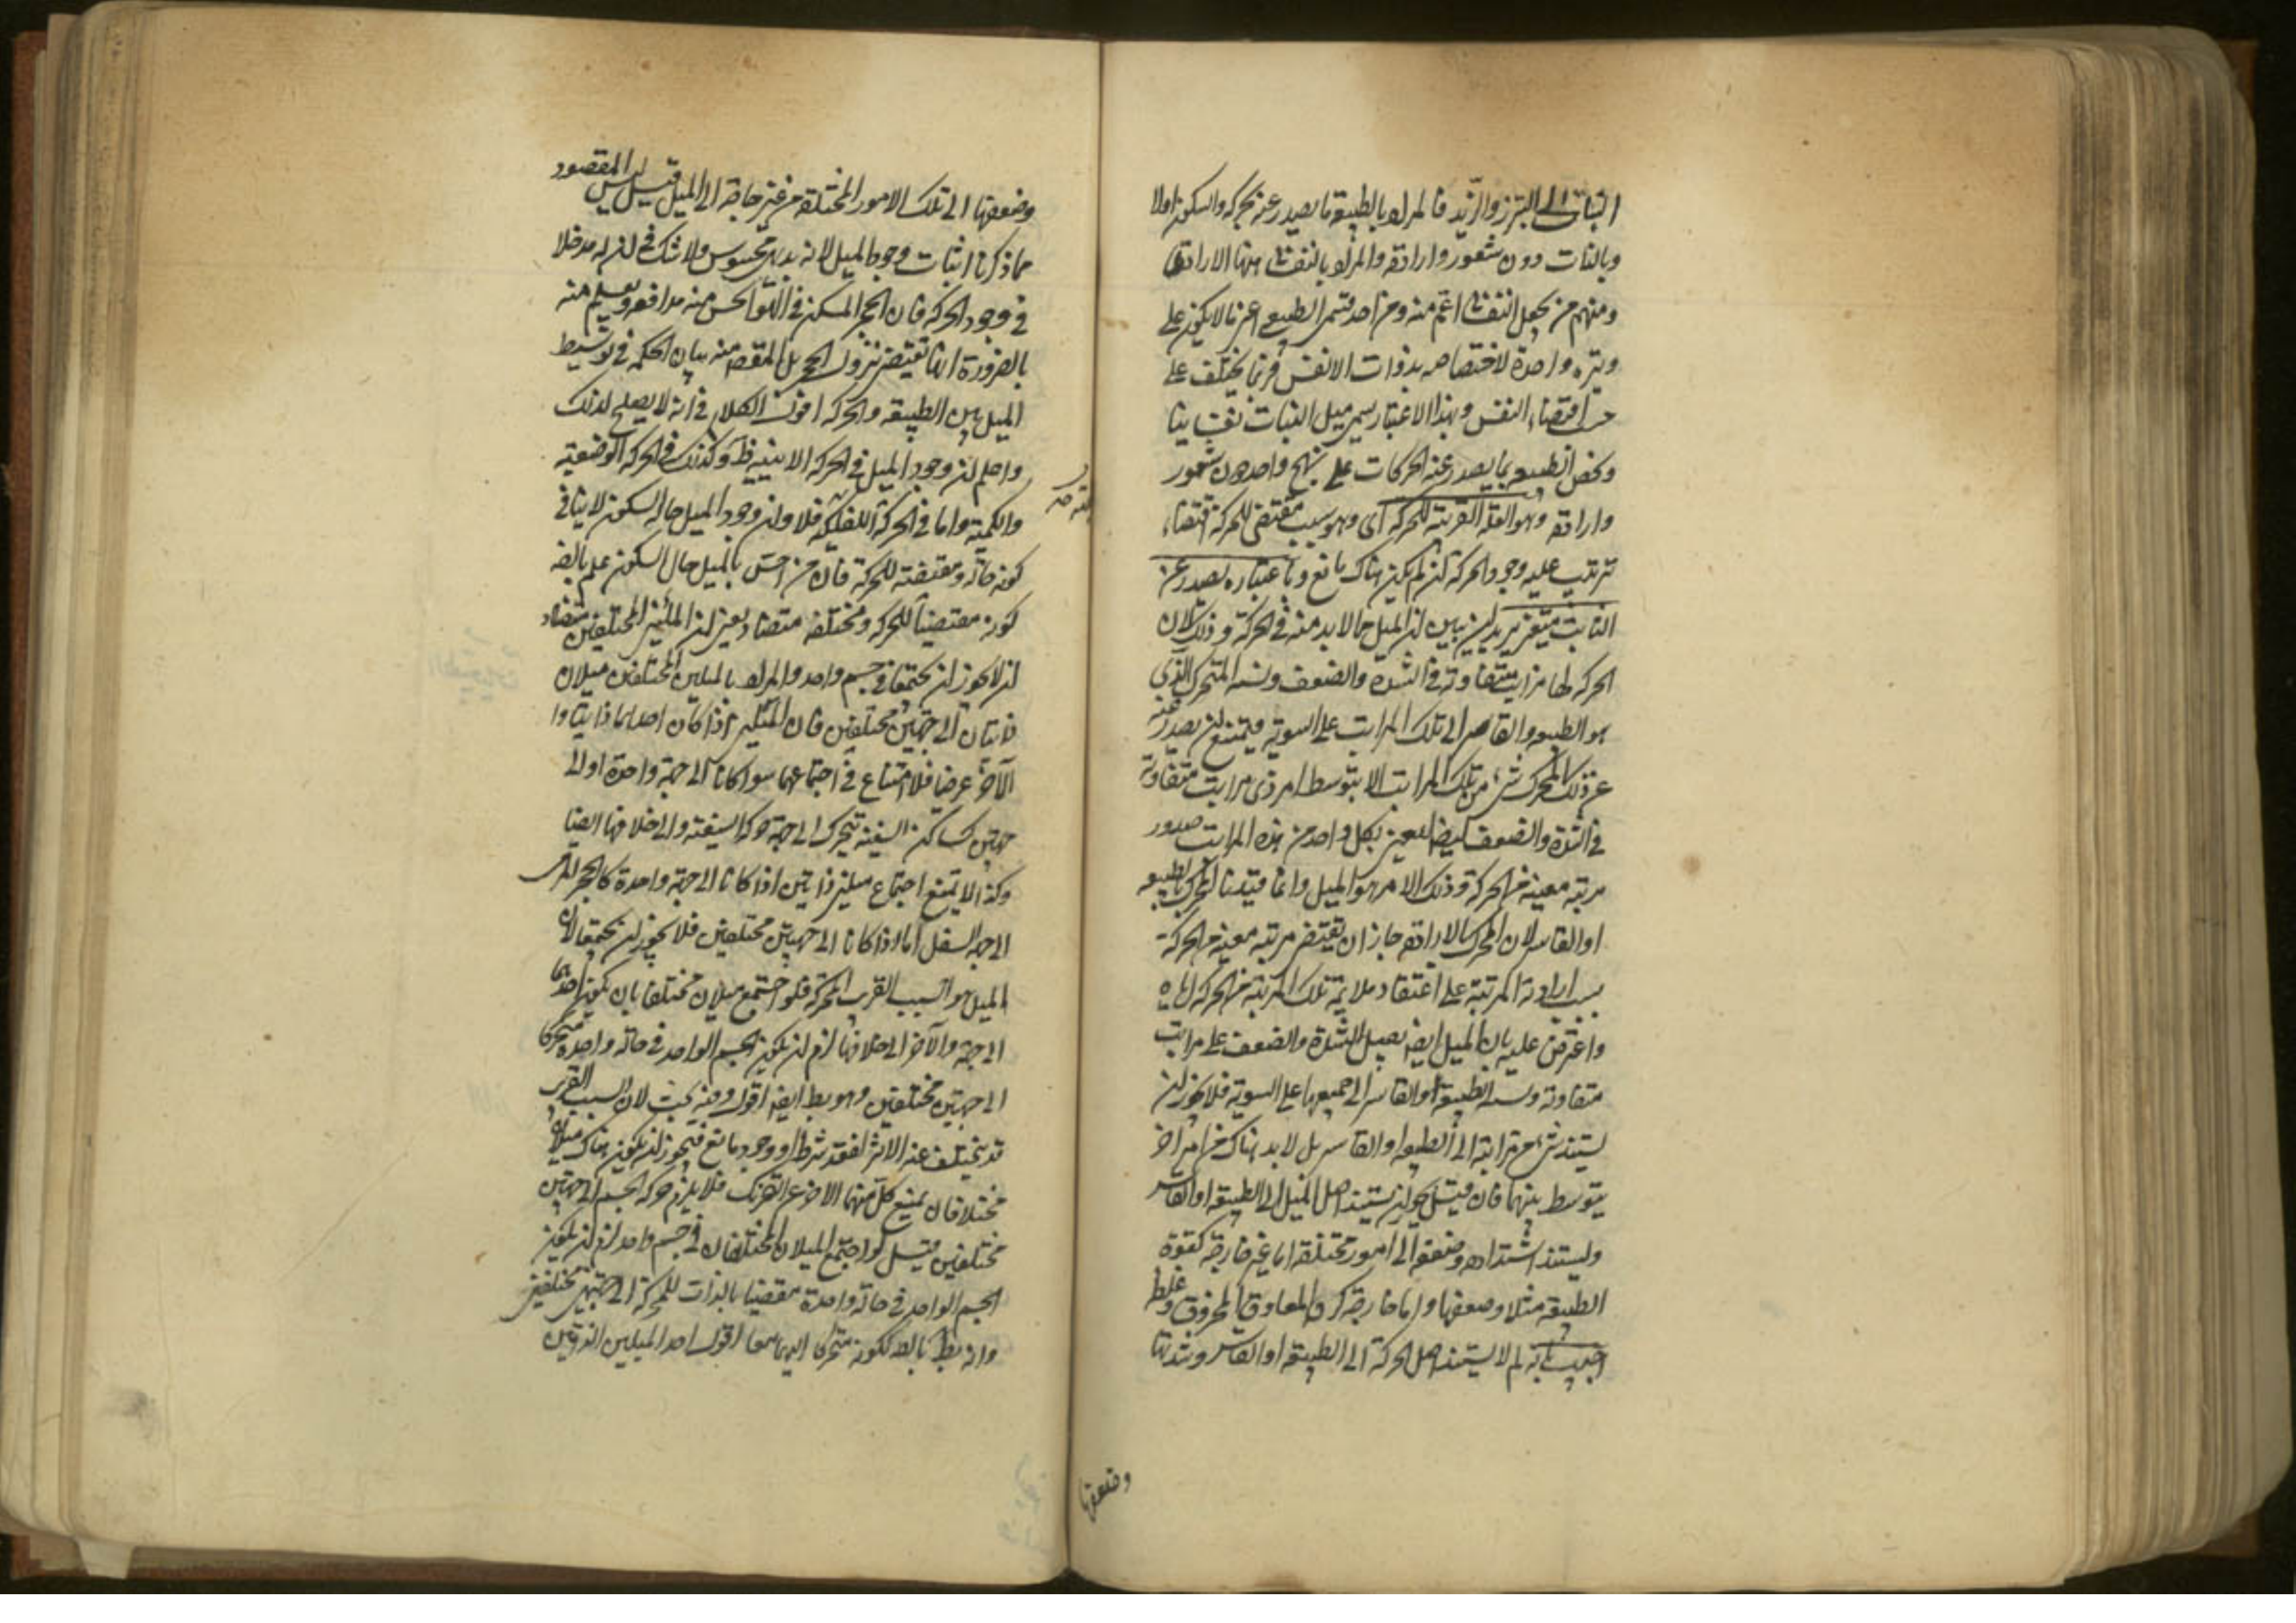 النبات الى التبرز والتزيد فالمراد بالطبيعة ما يصدر عنه الحركة والسكون اولا
وبالذات دون شعور وارادة والمراد بالنفساني ههنا الارادي
ومنهم من يجعل النفساني اعم منه ومن احد قسمي الطبيعي اعني ما لا يكون على
وتيرة واحدة لاختصاصه بذوات الانفس فربما يختلف على
حسب اقتضاء النفس وبهذا الاعتبار يسمى ميل النبات نفسانيا
ويخص الطبيعة بما يصدر عنه الحركات على نهج واحد دون شعور
وارادة وهو العلة القريبة للحركة اى وهو سبب مقتضى للحركة اقتضاء
ترتب عليه وجود الحركة ان لم يكن هناك مانع وباعتباره يصدر عن
الثابت متغير يريد ان يبين ان الميل مما لا بد منه في الحركة وذلك لان
الحركة لها مراتب متفاوتة في الشدة والضعف ونسبة المتحرك الذي
هو الطبيعة والقاسر الى تلك المراتب على السوية فيمتنع ان يصدر عنه
عن ذلك المحرك شيء من تلك المراتب الا بتوسط امر ذي مراتب متفاوتة
في الشدة والضعف ليتعين بكل واحد من هذه المراتب صدور
مرتبة معينة من الحركة وذلك الامر هو الميل وانما قيدنا المحرك بالطبيعة
او القاسر لان المحرك بالارادة جاز ان يقتضي مرتبة معينة من الحركة
بسبب ارادة المرتبة على اعتقاد ملايمة تلك المرتبة من الحركة اياه
واعترض عليه بان الميل ايضا يقبل الشدة والضعف على مراتب
متفاوتة ونسبة الطبيعة او القاسر الى جميعها على السوية فلا يجوز ان
يستند شيء من مراتبه الى الطبيعة او القاسر بل لا بد هناك من امر اخر
يتوسط بينهما فان قيل يجوز ان يستند اصل الميل الى الطبيعة او القاسر
ويستند اشتداده وضعفه الى امور مختلفة اما غير خارجة كقوة
الطبيعة مثلا وضعفها واما خارجة كرقة المعاوق المخروق وغلظه
اجيب بانه لم لا يستند اصل الحركة الى الطبيعة او القاسر وشدتها
وضعفها
وضعفها الى تلك الامور المختلفة من غير حاجة الى الميل قيل ليس المقصود
مما ذكرنا اثبات وجود الميل لانه بديهي محسوس ولا شك في ان له مدخلا
في وجود الحركة فان الحجر المسكن في الهواء يحس منه مدافعة ويعلم منه
بالضرورة انها تقتضي نزول الحجر بل المقصود منه بيان الحكمة في توسيط
الميل بين الطبيعة والحركة اقول الكلام في انه لا يصلح لذلك
واعلم ان وجود الميل في الحركة الاينية ظ وكذلك في الحركة الوضعية
والكمية واما في الحركة الكيفية فلا وان وجود الميل حالة السكون لا ينافي
كونه علة ومقتضية للحركة فان من احس بالميل حال السكون علم بالضرورة
كونه مقتضيا للحركة ومختلفه متضاد يعني ان الميلين المختلفين متضاد
ان لا يجوز ان يجتمعا في جسم واحد والمراد بالميلين المختلفين ميلان
ذاتيان الى جهتين مختلفين فان الميلين اذا كان احدهما ذاتيا والا
الآخر عرضيا فلا امتناع في اجتماعهما سواء كانا الى جهة واحدة او الى
جهتين كساكن السفينة يتحرك الى جهة حركة السفينة والى خلافها ايضا
وكذا لا يمتنع اجتماع ميلين ذاتيين اذا كانا الى جهة واحدة كالحجر المرمى
الى جهة السفل اما اذا كانا الى جهتين مختلفين فلا يجوز ان يجتمعا لان
الميل هو السبب القريب للحركة فلو اجتمع ميلان مختلفان بان يكون احدهما
الى جهة والآخر الى خلافها لزم ان يكون الجسم الواحد في حالة واحدة متحركا
الى جهتين مختلفين وهو بط ايضا اقول وفيه بحث لان السبب القريب
قد يتخلف عنه الاثر لفقد شرط او وجود مانع فيجوز ان يكون هناك ميلان
مختلفان يمنع كل منهما الاخر عن التحريك فلا يلزم حركة الجسم الى جهتين
مختلفين قيل لو اجتمع الميلان المختلفان في جسم واحد لزم ان يكون
الجسم الواحد في حالة واحدة مقتضيا بالذات للحركة الى جهتين مختلفين
وانه بط بالضرورة ككونه متحركا اليهما معا اقول احد الميلين الذاتيين